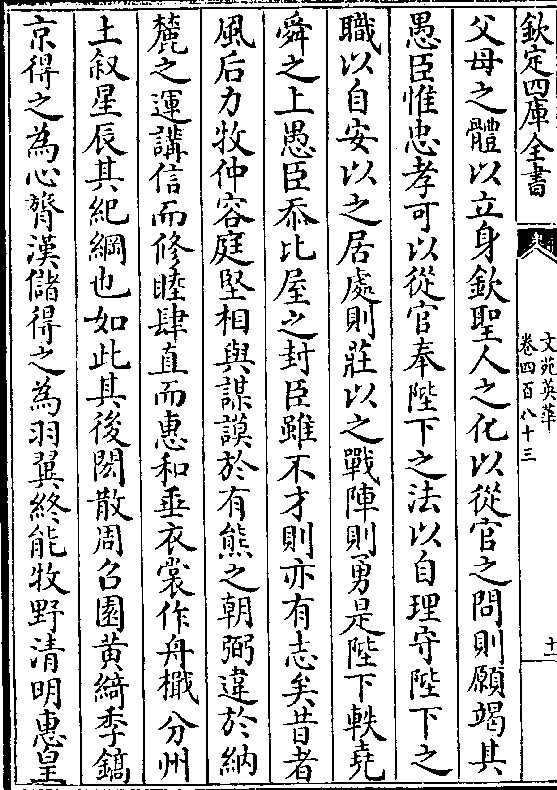 欽定四庫全書
文苑英華
卷四百八十三
十一
父母之體以立身欽聖人之化以從官之問則願竭其
愚臣惟忠孝可以從官奉陛下之法以自理守陛下之
職以自安以之居處則莊以之戰陣則勇是陛下軼堯
舜之上愚臣忝比屋之封臣雖不才則亦有志矣昔者
風后力牧仲容庭堅相與謀謨於有熊之朝弼違於納
麓之運講信而修睦肆直而惠和垂衣裳作舟檝分州
土叙星辰其紀綱也如此其後閎散周召園黄綺季鎬
京得之為心膂漢儲得之為羽翼終能牧野清明惠皇